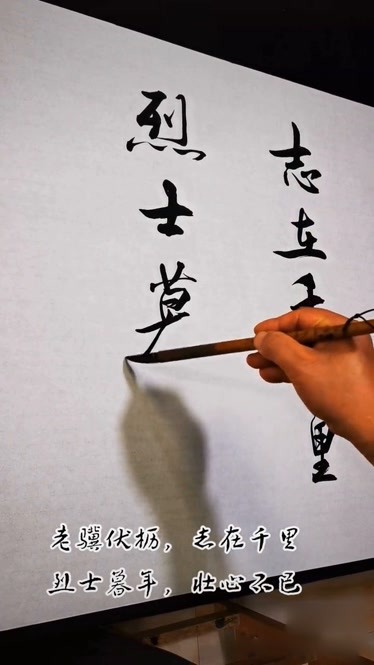 志在千里
烈士莫
老骥伏枥，志在千里
烈士暮年，壮心不已